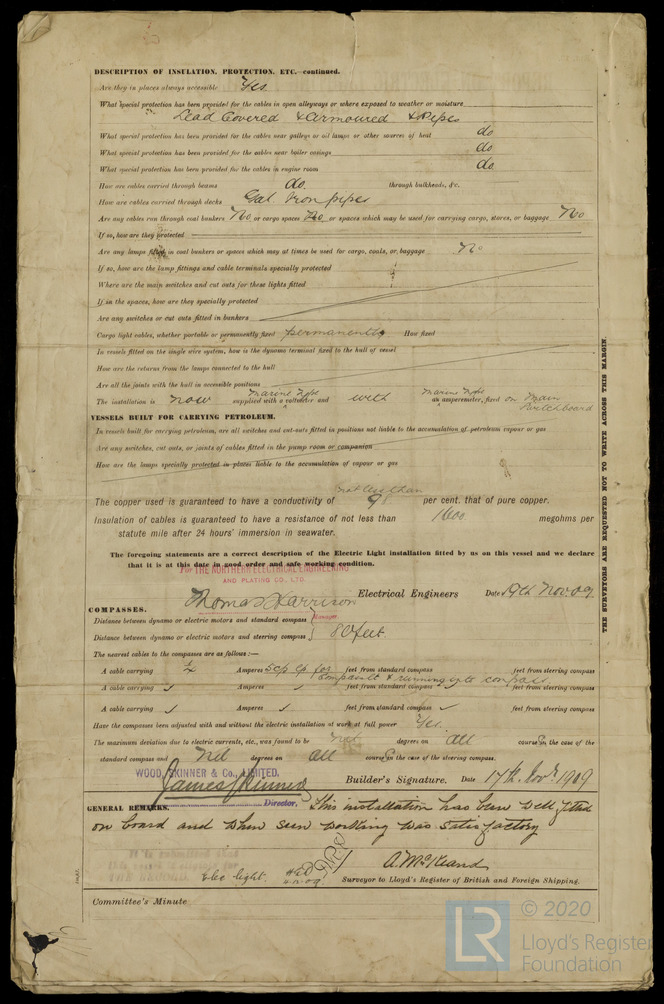 DESCRIPTION OF INSULATION, PROTECTION, ETC.—continued.
Are they in places always accessible Yes
What special protection has been provided for the cables in open alleyways or where exposed to weather or moisture
Lead Covered & Armoured & Pipes
What special protection has been provided for the cables near galleys or oil lamps or other sources of heat do
What special protection has been provided for the cables near boiler casings do
What special protection has been provided for the cables in engine room do
How are cables carried through beams do. through bulkheads, &c.
How are cables carried through decks Gal Iron pipes
Are any cables run through coal bunkers No or cargo spaces No or spaces which may be used for carrying cargo, stores, or baggage No
If so, how are they protected
Are any lamps fitted in coal bunkers or spaces which may at times be used for cargo, coals, or baggage No
If so, how are the lamp fittings and cable terminals specially protected
Where are the main switches and cut outs for these lights fitted
If in the spaces, how are they specially protected
Are any switches or cut outs fitted in bunkers
Cargo light cables, whether portable or permanently fixed permanently How fixed
In vessels fitted on the single wire system, how is the dynamo terminal fixed to the hull of vessel
How are the returns from the lamps connected to the hull
Are all the joints with the hull in accessible positions
The installation is now supplied with a marine type voltmeter and with marine type an amperemeter, fixed on Main Switchboard
VESSELS BUILT FOR CARRYING PETROLEUM.
In vessels built for carrying petroleum, are all switches and cut-outs fitted in positions not liable to the accumulation of petroleum vapour or gas
Are any switches, cut outs, or joints of cables fitted in the pump room or companion
How are the lamps specially protected in places liable to the accumulation of vapour or gas
The copper used is guaranteed to have a conductivity of not less than per cent. that of pure copper.
Insulation of cables is guaranteed to have a resistance of not less than 1600 megohms per
statute mile after 24 hours' immersion in seawater.
The foregoing statements are a correct description of the Electric Light installation fitted by us on this vessel and we declare
that it is at this date in good order and safe working condition.
For THE NORTHERN ELECTRICAL ENGINEERING
AND PLATING CO., LTD.
Thomas Harrison Electrical Engineers Date 19th Nov. 09
Manager.
COMPASSES.
Distance between dynamo or electric motors and standard compass
Distance between dynamo or electric motors and steering compass 80 feet.
The nearest cables to the compasses are as follows:—
A cable carrying Amperes 5 cp lp for feet from standard compass feet from steering compass
compass lt & running up to compass.
A cable carrying Amperes feet from standard compass feet from steering compass
A cable carrying Amperes feet from standard compass feet from steering compass
Have the compasses been adjusted with and without the electric installation at work at full power Yes.
The maximum deviation due to electric currents, etc., was found to be Nil degrees on all course in the case of the
standard compass and Nil degrees on all course in the case of the steering compass.
WOOD, SKINNER & Co., LIMITED.
James Skinner Builder's Signature. Date 17th. Novr. 1909
Director.
GENERAL REMARKS. This installation has been well fitted
on board and when seen working was satisfactory
Elec light
A. McKeand
Surveyor to Lloyd's Register of British and Foreign Shipping.
Committee's Minute
THE SURVEYORS ARE REQUESTED NOT TO WRITE ACROSS THIS MARGIN.
LR
© 2020
Lloyd's Register
Foundation